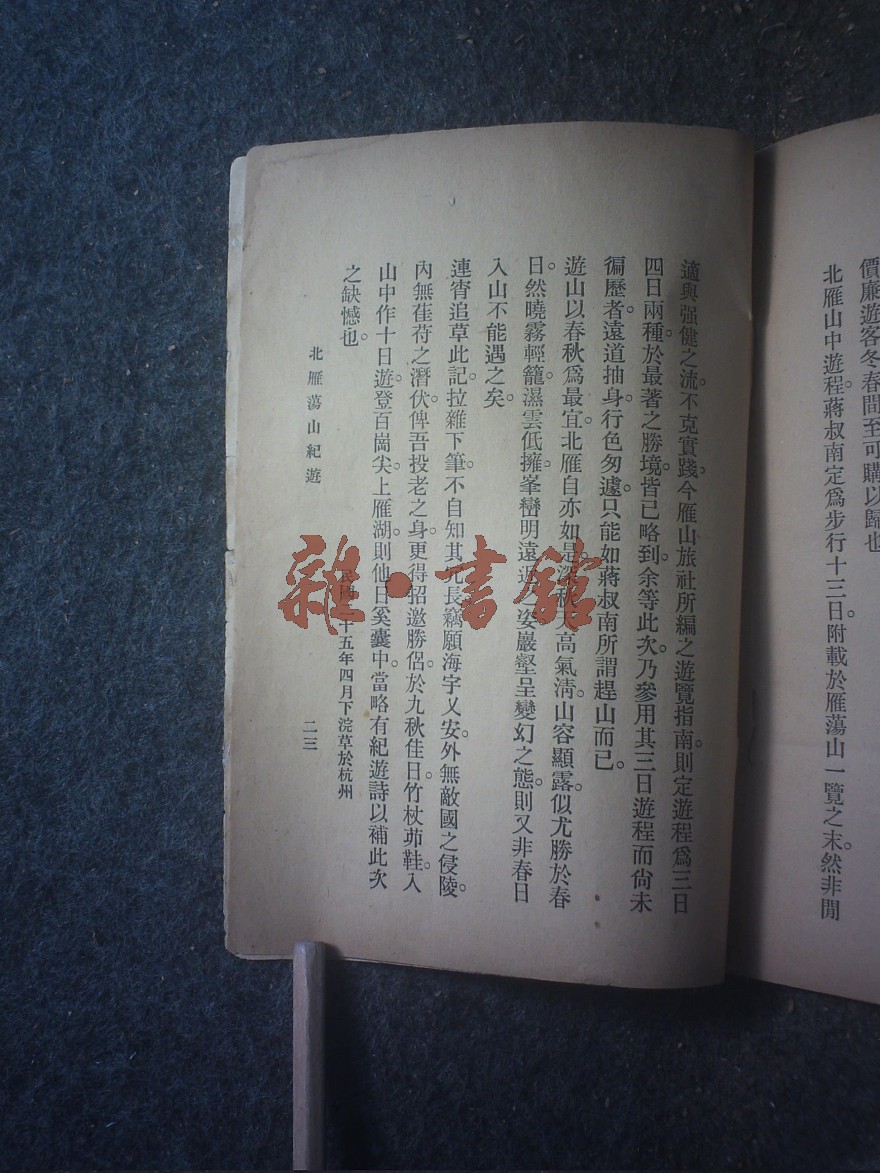 價廉遊客冬春間至可購以歸也
北雁山中遊程。蔣叔南定爲步行十三日。附載於雁蕩山一覽之末。然非閒
適與强健之流。不克實踐。今雁山旅社所編之遊覽指南。則定遊程爲三日
四日兩種。於最著之勝境。皆已略到。余等此次。乃參用其三日遊程而尙未
徧歷者。遠道抽身。行色匆遽。只能如蔣叔南所謂趕山而已。
遊山以春秋爲最宜。北雁自亦如是。深秋天高氣淸。山容顯露。似尤勝於春
日。然曉霧輕籠。濕雲低擁。峯巒明遠近之姿。巖壑呈變幻之態。則又非春日
入山不能遇之矣。
連宵追草此記。拉雜下筆。不自知其冗長。竊願海宇乂安。外無敵國之侵陵。
內無萑苻之潛伏。俾吾投老之身。更得招邀勝侶。於九秋佳日。竹杖茆鞋。入
山中作十日遊。登百崗尖。上雁湖。則他日奚囊中。當略有紀遊詩以補此次
之缺憾也。
民國二十五年四月下浣草於杭州
北雁蕩山紀遊
二三
雜·書館